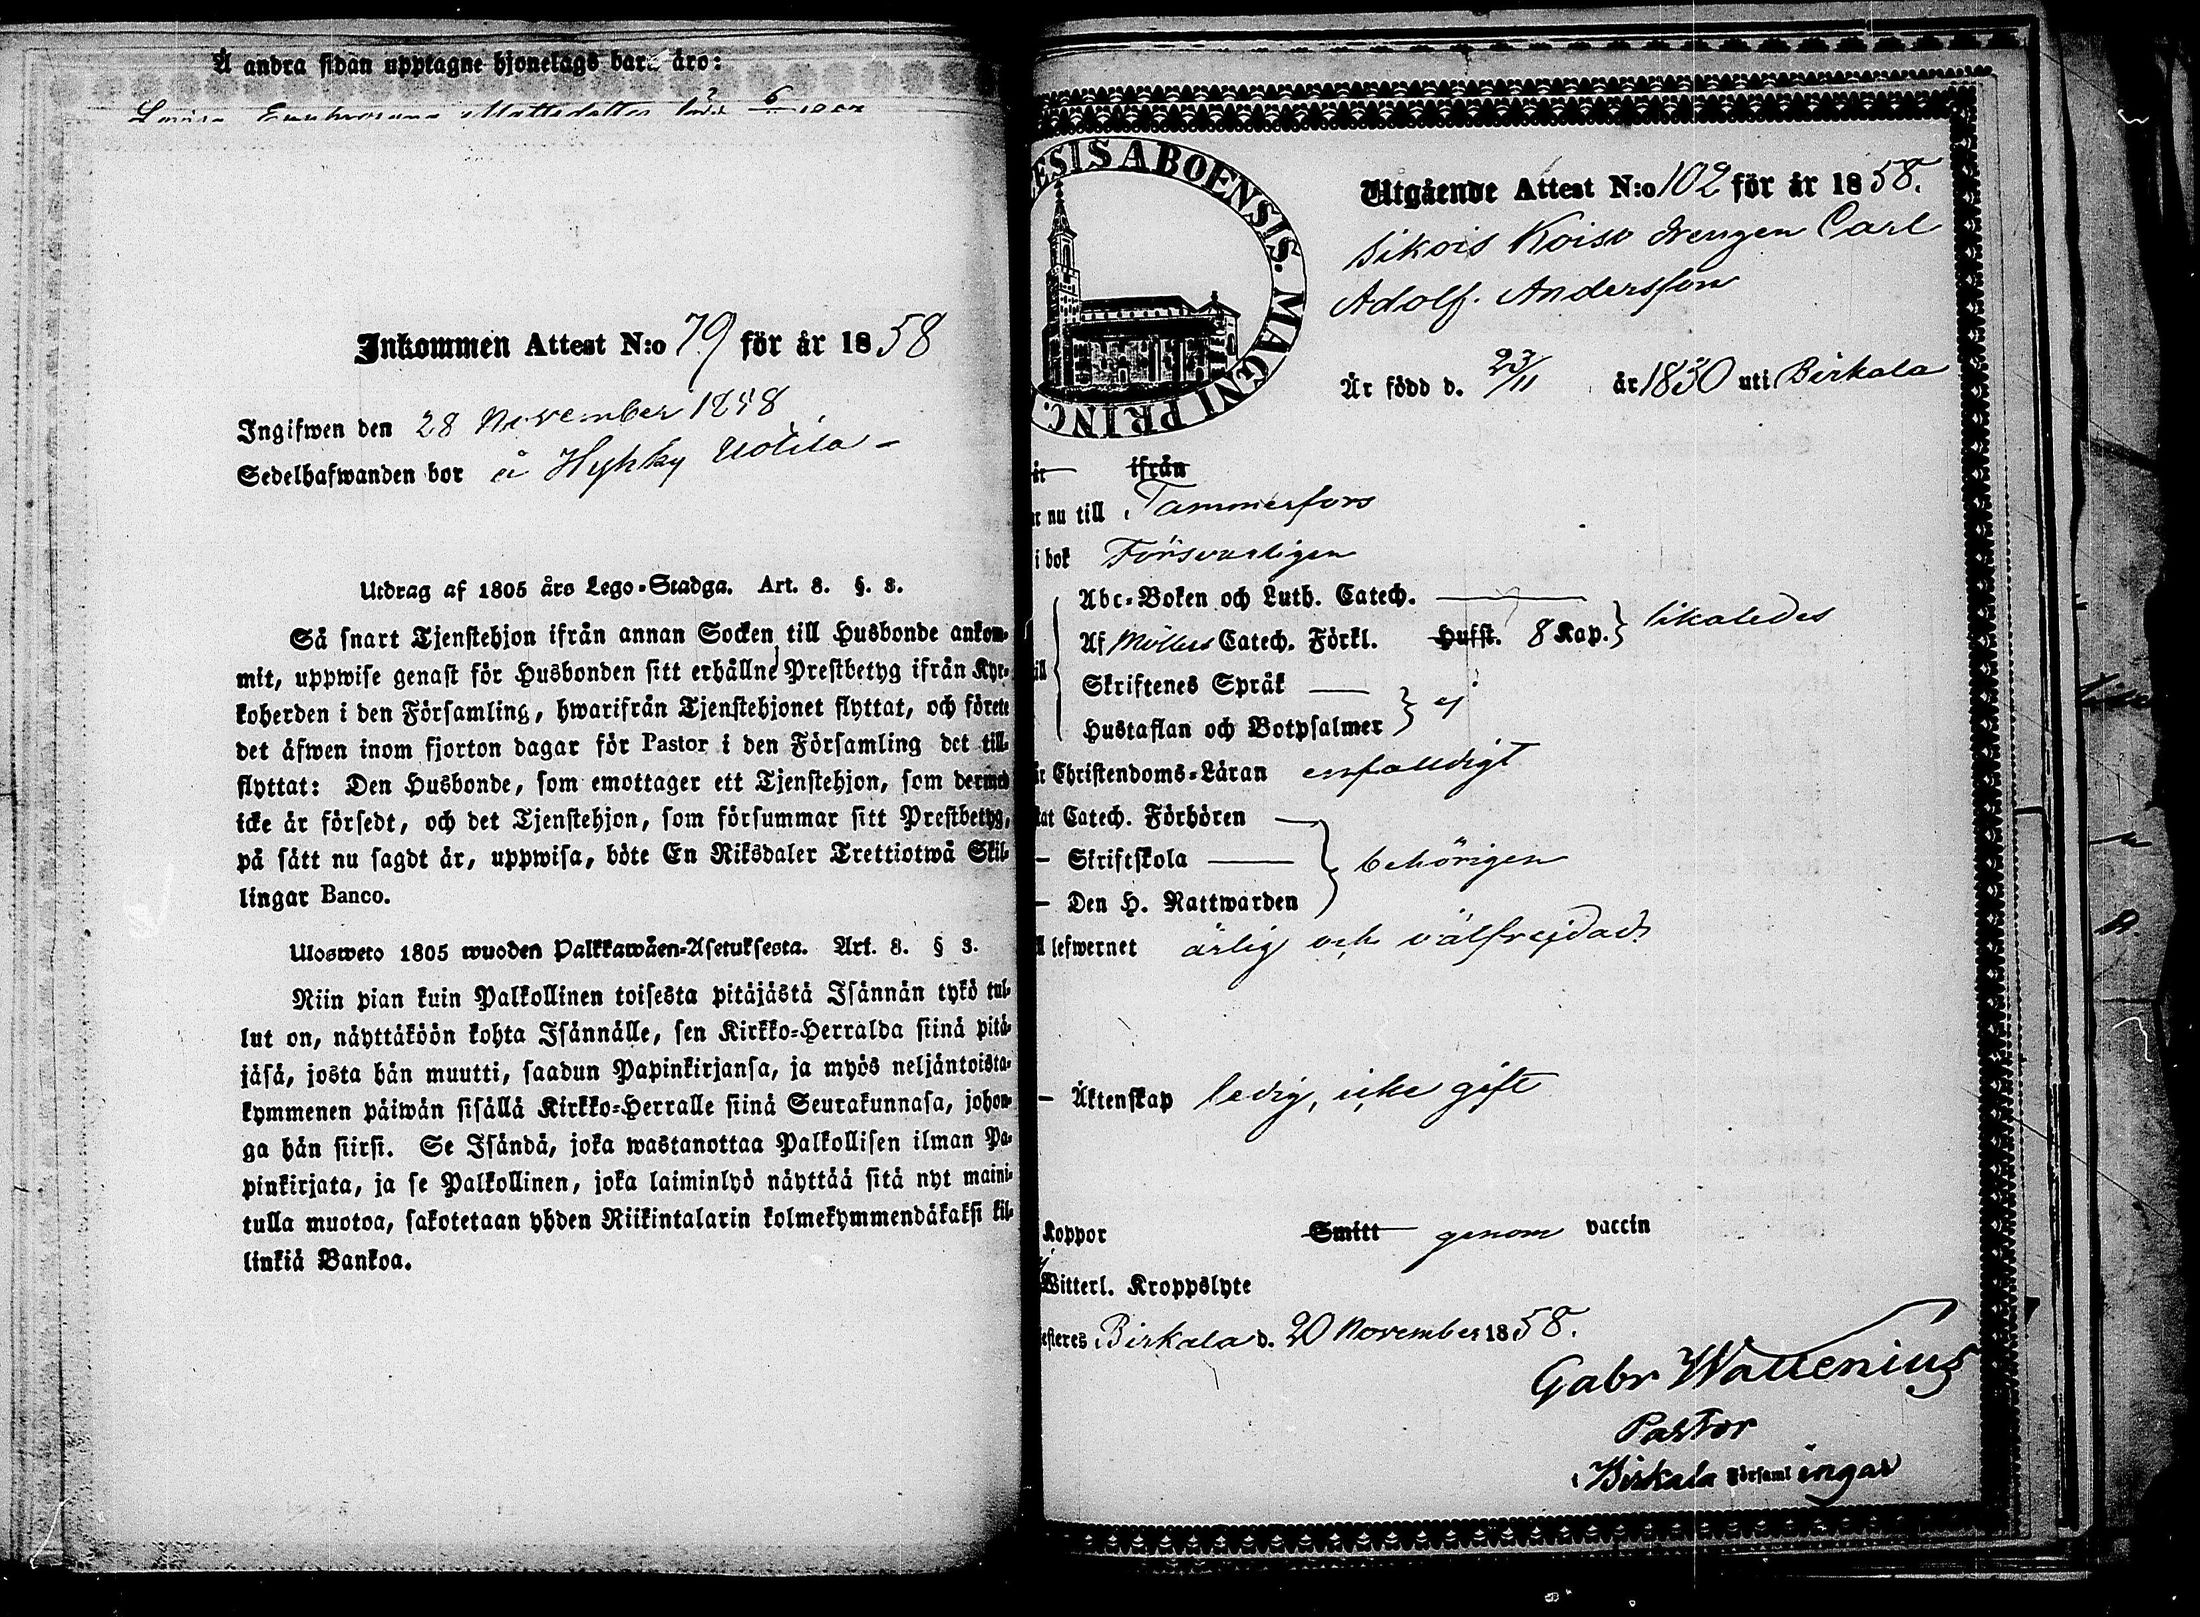 Å andra sidan upptagne hjonelags barn äro:
Mattsdotter
Inkommen Attest N:o 79 för år 1858
Ingifwen den 28 November 1858
Sedelhafwanden bor å Hyhky Uotila –
Utdrag af 1805 års Lego-Stadga. Art. 8. §. 3.
Så snart Tjenstehjon ifrån annan Socken till Husbonde ankom-
mit, uppwise genast för Husbonden sitt erhållne Prestbetyg ifrån Kyr-
koherden i den Församling, hwarifrån Tjenstehjonet flyttat, och förete
det äfwen inom fjorton dagar för Pastor i den Församling det till-
flyttat: Den Husbonde, som emottager ett Tjenstehjon, som dermed
icke är försedt, och det Tjenstehjon, som försummar sitt Prestbetyg,
på sätt nu sagdt är, uppwisa, böte En Riksdaler Trettiotwå Skil-
lingar Banco.
Ulosweto 1805 wuoden Palkkawäen-Asetuksesta. Art. 8. § 3.
Niin pian kuin Palkollinen toisesta pitäjästä Isännän tykö tul-
lut on, näyttäköön kohta Isännälle, sen Kirkko-Herralda siinä pitä-
jäsä, josta hän muutti, saadun Papinkirjansa, ja myös neljäntoista-
kymmenen päiwän sisällä Kirkko-Herralle siinä Seurakunnasa, johon-
ga hän siirsi. Se Isändä, joka wastanottaa Palkollisen ilman Pa-
pinkirjata, ja se Palkollinen, joka laiminlyö näyttää sitä nyt maini-
tulla muotoa, sakotetaan yhden Riikintalarin kolmekymmendäkaksi kil-
linkiä Bankoa.
ESIS ABOENSIS. MAGNI PRINC.
Utgående Attest N:o 102 för år 1858.
Sikois Koiso drengen Carl
Adolf Andersson
Är född d. 23/11 år 1830 uti Birkala
ifrån
nu till Tammerfors
i bok Försvarligen
Abc-Boken och Luth. Catech.
Af Möllers Catech. Förkl. Hufst. 8 Kap. } likaledes
Skriftenes Språk
Hustaflan och Botpsalmer } ej
Christendoms-Läran enfaldigt
Catech. Förhören
– Skriftskola } behörigen
– Den H. Nattwarden
lefwernet ärlig och välfrejdad.
– Äktenskap ledig, icke gift
Koppor Smitt genom vaccin
Witterl. Kroppslyte
Birkala d. 20 November 1858.
Gabr Wallenius
Pastor
i Birkala Församlingar